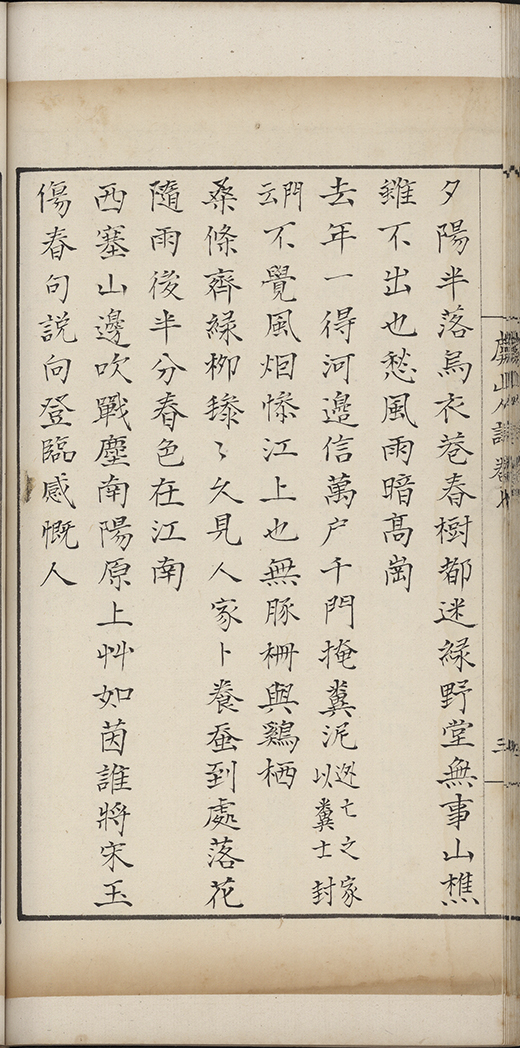 夕陽半落烏衣巷春樹都迷綠野堂無事山樵
雖不出也愁風雨暗髙崗
去年一得河邉信萬户千門掩糞泥逃亡之家以糞土封
門云不覺風烟慘江上也無豚柵與鷄栖
桑條齊綠柳毿〻久見人家卜養蚕到處落花
隨雨後半分春色在江南
西塞山邊吹戰塵南陽原上艸如茵誰將宋玉
傷春句説向登臨感慨人
虞山人詩卷
三